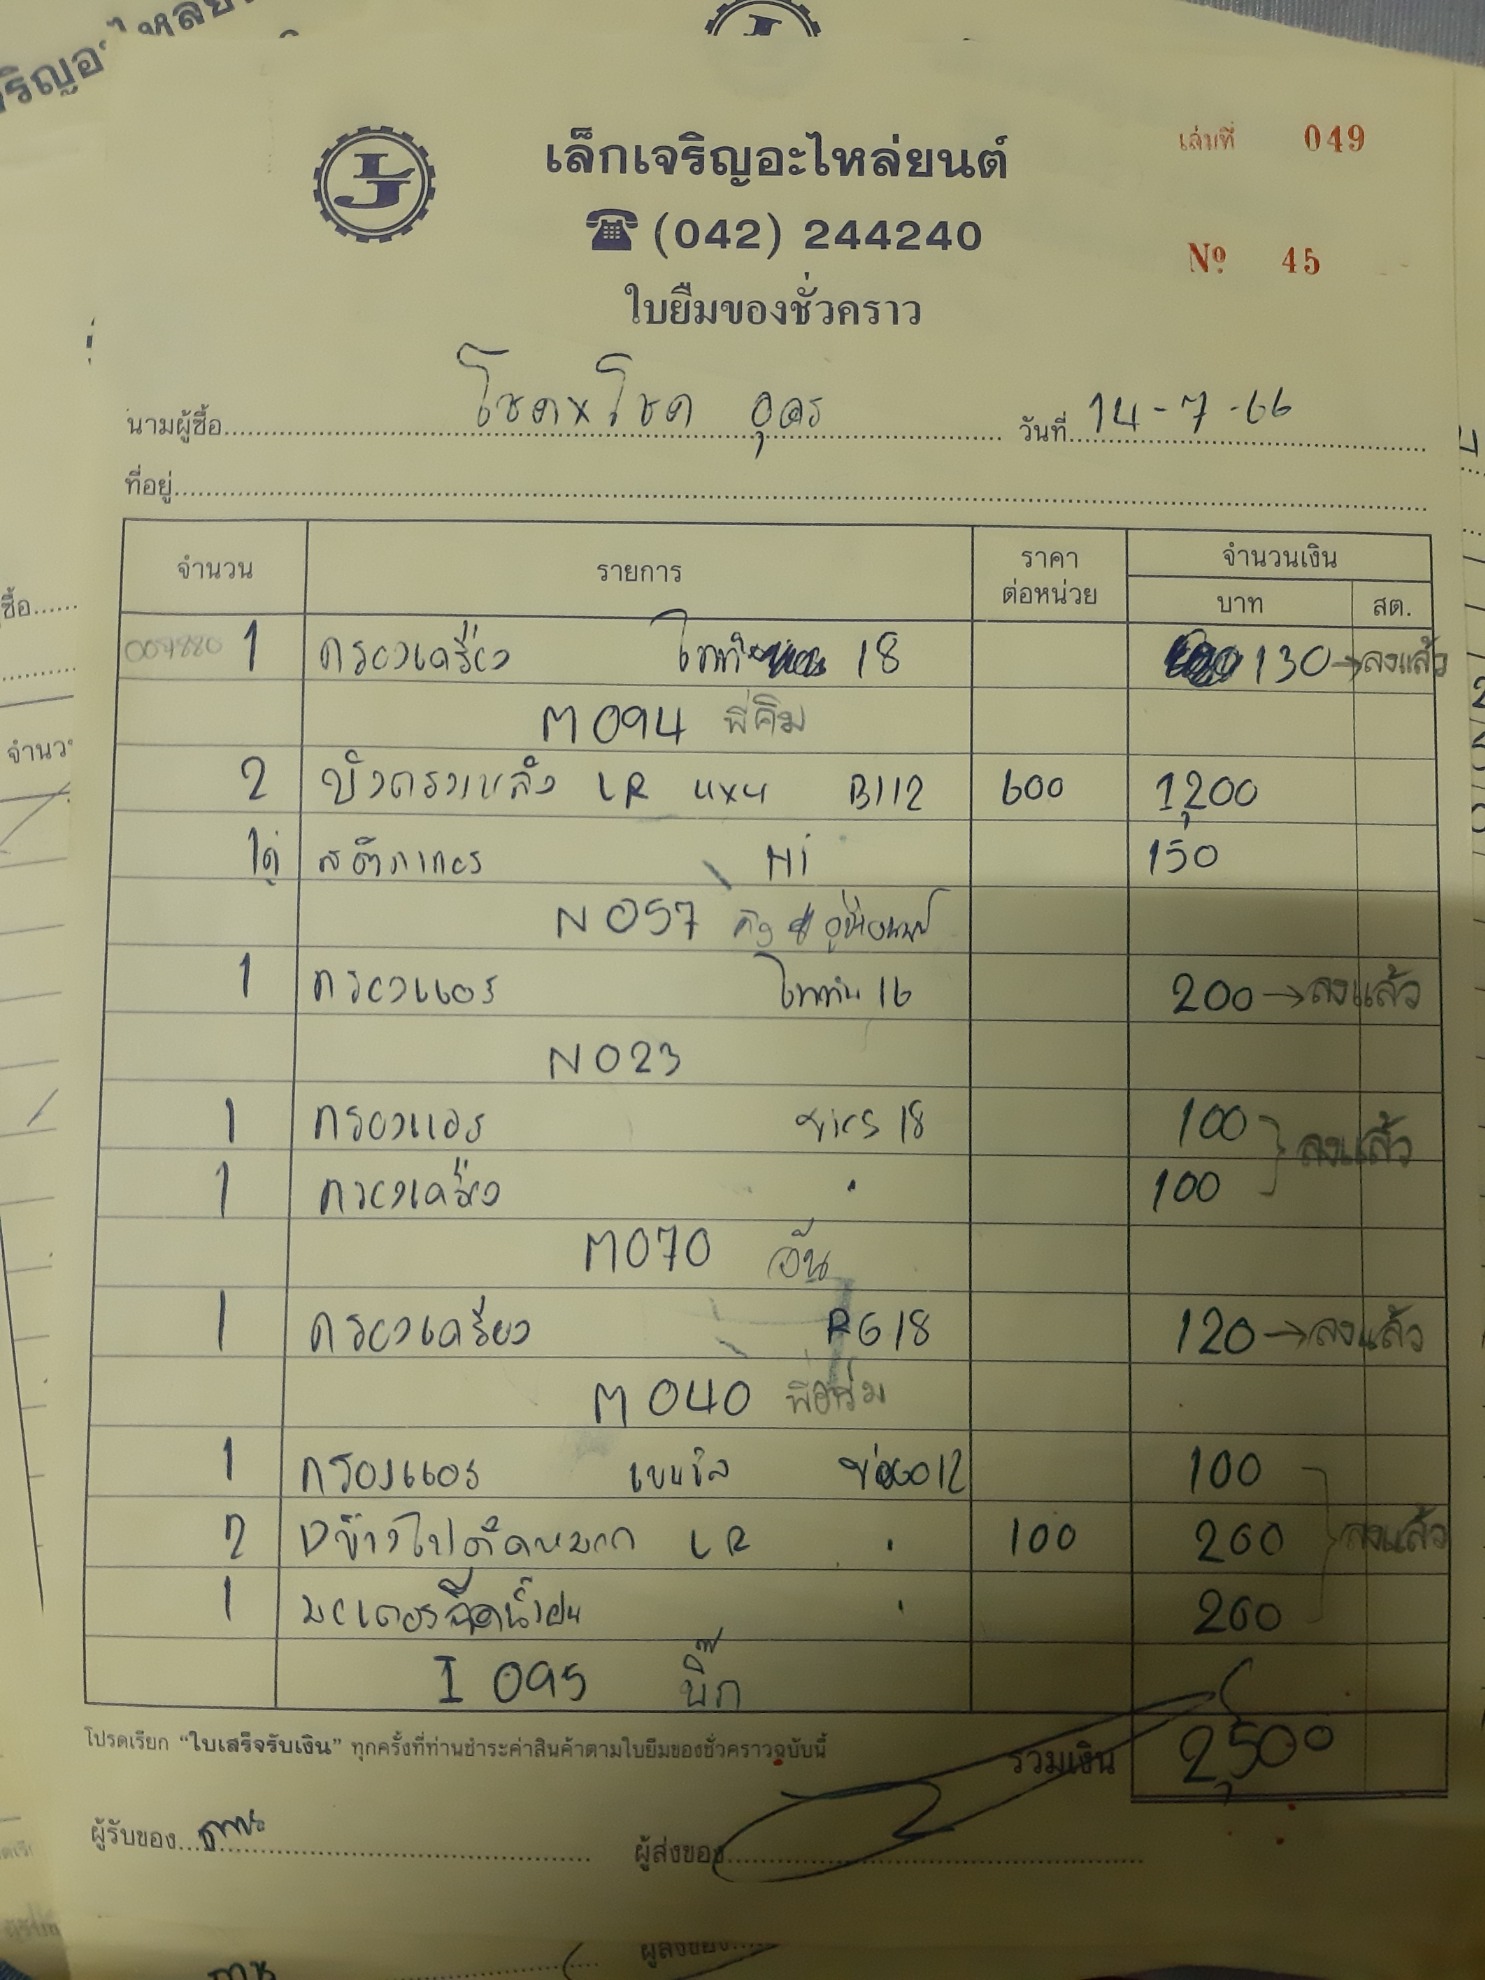 เล็กเจริญอะไหล่ยนต์
เล่มที่ 049
(042) 244240
Nº 45
ใบยืมของชั่วคราว
นามผู้ซื้อ โชคxโชค อุดร วันที่ 14-7-66
ที่อยู่
จำนวน รายการ ราคาต่อหน่วย จำนวนเงิน บาท สต.
007880 1 กรองเครื่อง 18 130 → ลงแล้ว
M094 พี่คิม
2 LR 4x4 B112 600 1,200
1 Hi 150
N057
1 กรองแอร์ ไททัน 16 200 → ลงแล้ว
N023
1 กรองแอร์ 18 100 ลงแล้ว
1 กรองเครื่อง " 100
M070 อัน
1 กรองเครื่อง RG18 120 → ลงแล้ว
M040
1 กรองแอร์ 012 100
2 LR " 100 200 ลงแล้ว
1 มอเตอร์ฉีดน้ำฝน " 200
I 095 บิ๊ก
โปรดเรียก “ใบเสร็จรับเงิน” ทุกครั้งที่ท่านชำระค่าสินค้าตามใบยืมของชั่วคราวฉบับนี้
รวมเงิน 2,500
ผู้รับของ ผู้ส่งของ